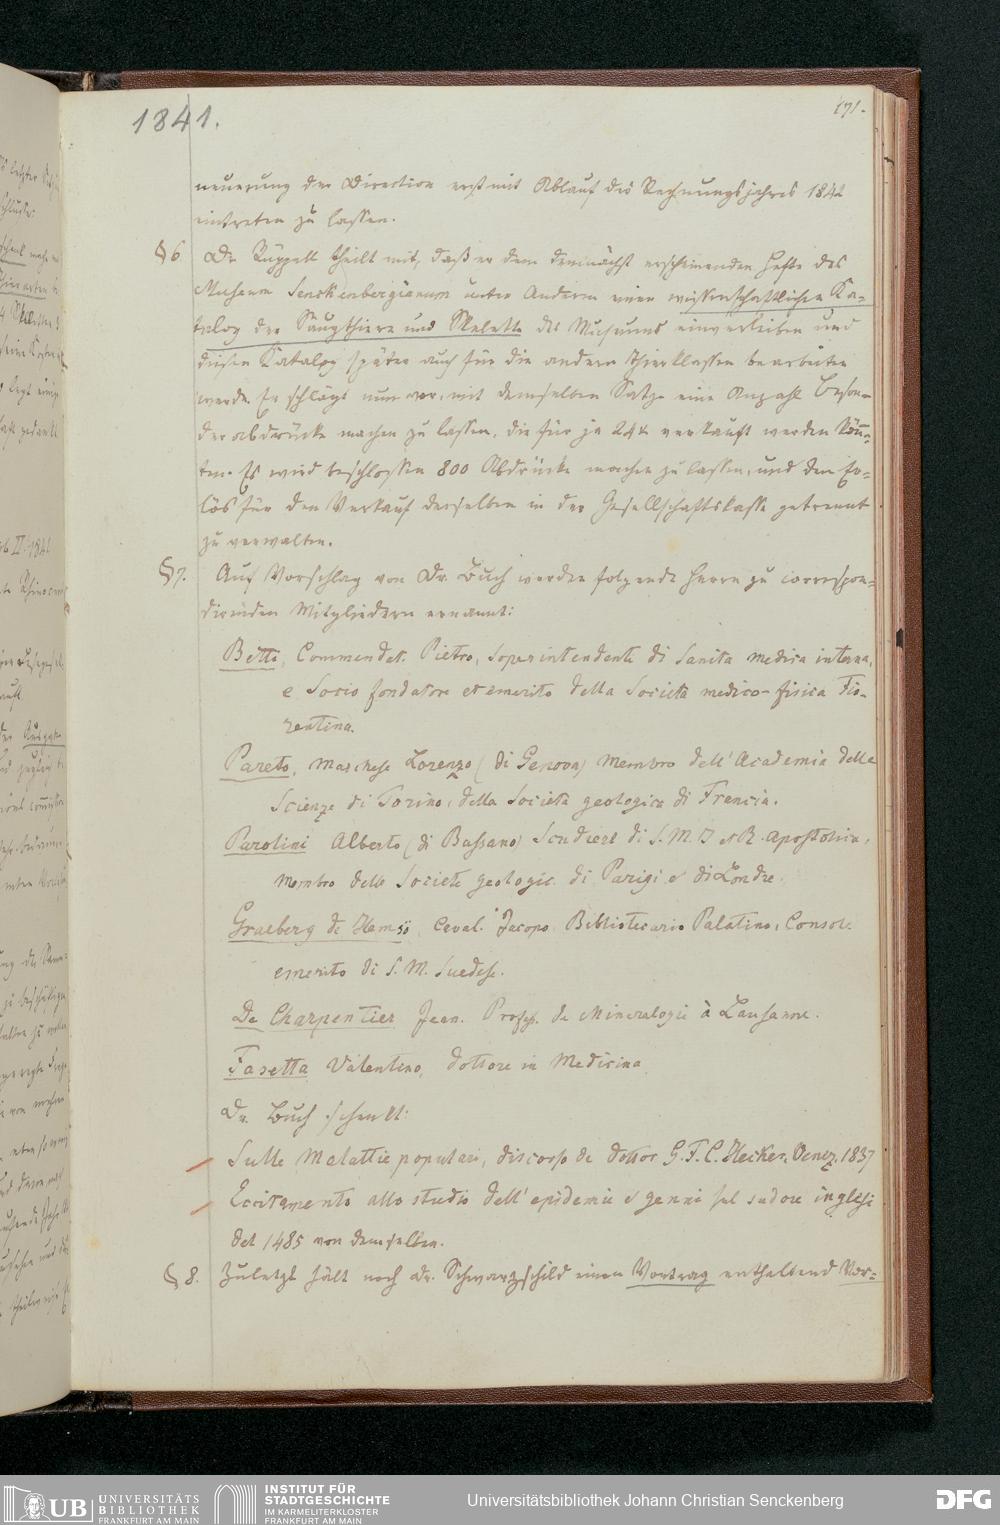 1841.
171.
neuerung der Direction erst mit Ablauf des Rechnungsjahres 1842
eintreten zu lassen.
§ 6 Dr. Rüppell theilt mit, daß er dem demnächst erscheinenden Hefte des
Museum Senckenbergianum unter Anderm einen wissenschaftlichen Ka-
talog der Säugthiere und Skelette des Museums einverleiben und
diesen Katalog später auch für die andern Thierklassen bearbeiten
werde. Er schlägt nun vor, mit demselben Satze eine Anzahl beson-
derabdrücke machen zu lassen, die für je 24 x verkauft werden könn-
ten. Es wird beschlossen 800 Abdrücke machen zu lassen, und den Er-
lös für den Verkauf derselben in der Gesellschaftskasse getrennt
zu verwalten.
§ 7. Auf Vorschlag von Dr. Buch werden folgende Herrn zu correspon-
direnden Mitgliedern ernannt:
Betti, Commendat. Pietro, Soperintendente di Sanita medica interna,
e Socio fondatore et emerito della Societa medico-fisica Fio-
rentina.
Pareto, Marchese Lorenzo (di Genova) Membro dell' Academia delle
Scienze di Torino, della Societa geologica di Francia.
Parolini Alberto (di Bassano) Scudiere di S. M. I et R. Apostolica,
Membro delle Societe geologic. di Parigi e di Londre.
Graeberg de Hemsö, Caval. Jacopo Bibliotecario Palatino, Console
emerito di S. M. Suedese.
De Charpentier Jean. Profess. de Mineralogie à Lausanne.
Fasetta Valentino, Dottore in Medicina
Dr. Buch schenkt:
Sulle Malattie popolari, discorso de dottor G. F. C. Hecker, Venez. 1837
Eccitamento allo studio dell' epidemie e genni sul sudore inglesi
del 1485 von demselben.
§ 8. Zuletzt hält noch Dr. Schwarzschild einen Vortrag enthaltend Ver-
UB UNIVERSITÄTS
BIBLIOTHEK
FRANKFURT AM MAIN
INSTITUT FÜR
STADTGESCHICHTE
IM KARMELITERKLOSTER
FRANKFURT AM MAIN
Universitätsbibliothek Johann Christian Senckenberg
DFG